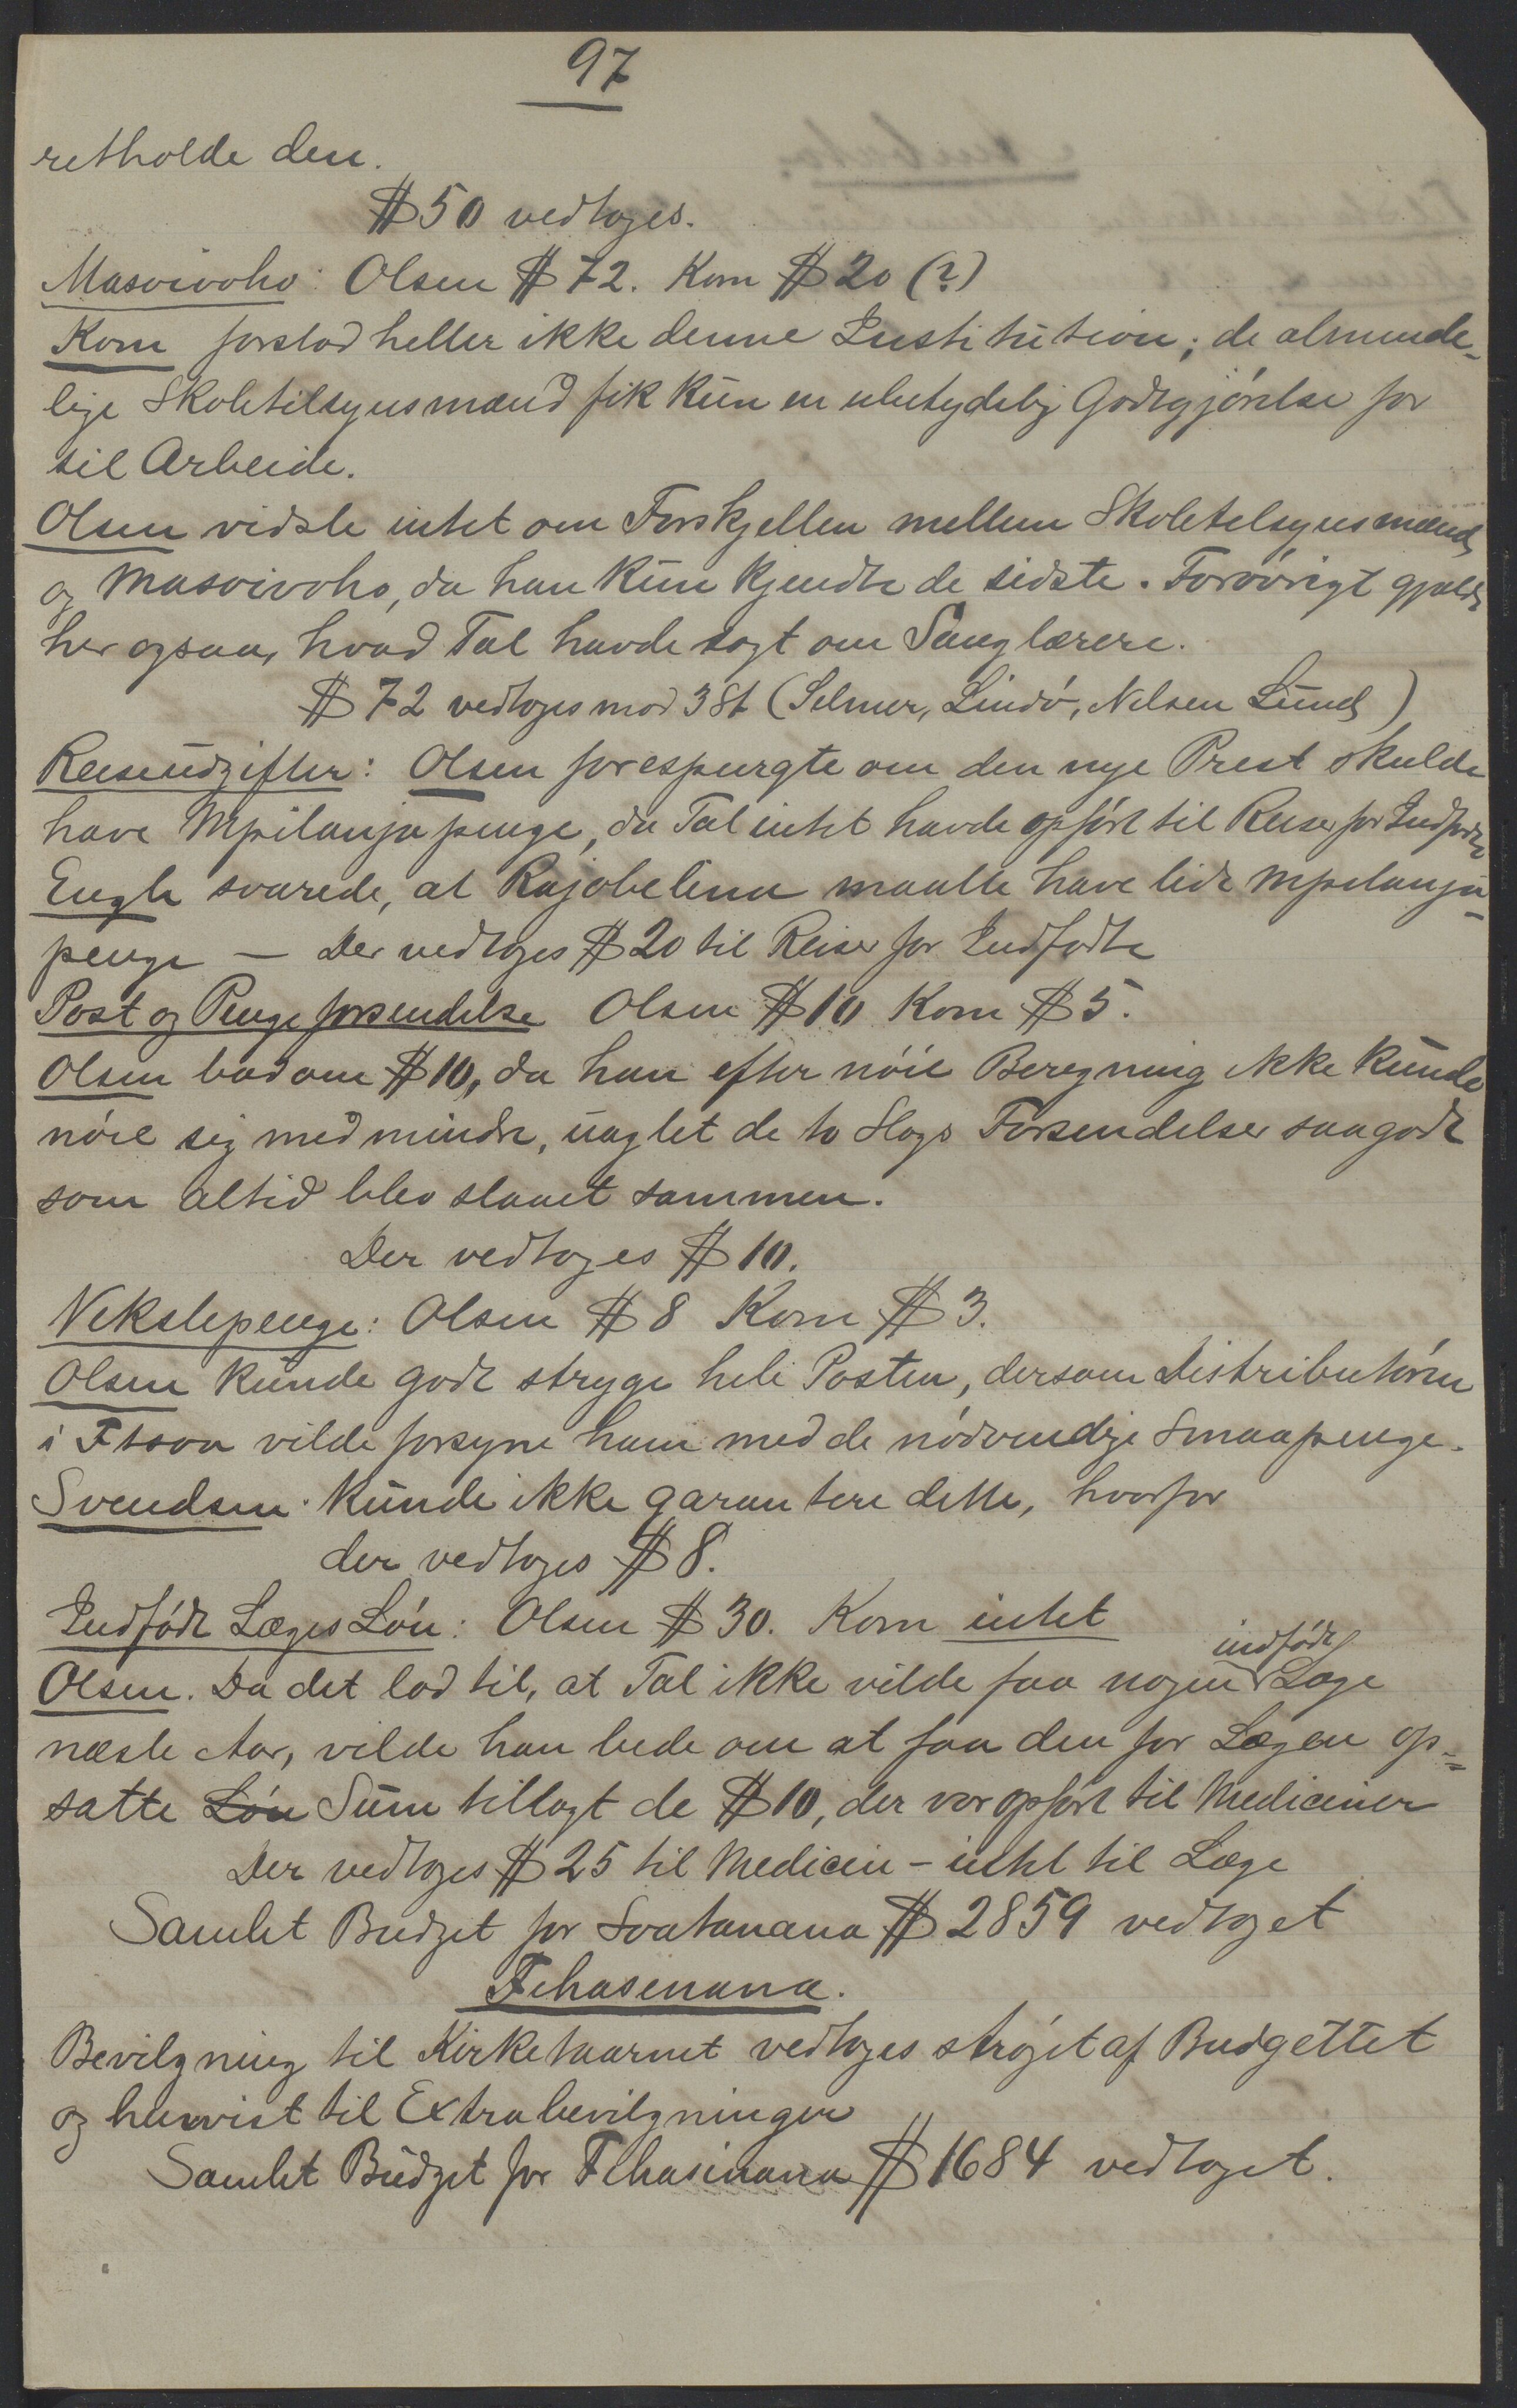 97
retholde den.
$50 vedtoges.
Masoivoho: Olsen $72. Kom $20 (?)
Kom forstod heller ikke denne Institution; de alminde-
lige Skoletilsynsmænd fik kun en ubetydelig Godtgjørelse for
sil Arbeide.
Olsen vidste intet om Forskjellen mellem Skoletilsynsmænd
og Masoivoho, da han kun kjendte de sidste. Forøvrigt gjaldt
her ogsaa, hvad Tal havde sagt om Sanglærere.
$72 vedtoges mod 3 St (Selmer, Lindø, Nilsen Lund)
Reiseudgifter: Olsen forespurgte om den nye Prest skulde
have Mpilanjapenge, da Tal intet havde opført til Reiser for Indfødte
Engh svarede, at Rajobelina maatte have lidt Mpilanja-
penge — Der vedtoges $20 til Reiser for Indfødte
Post og Pengeforsendelse Olsen $10 Kom $5.
Olsen bad om $10, da han efter nøie Beregning ikke kunde
nøie sig med mindre, uagtet de to Slags Forsendelser saagodt
som altid blev slaaet sammen.
Der vedtoges $10.
Vekslepenge: Olsen $8 Kom $3.
Olsen kunde godt stryge hele Posten, dersom Distributøren
i Ftsoa vilde forsyne ham med de nødvendige Smaapenge.
Svendsen kunde ikke garantere dette, hvorfor
der vedtoges $8.
Indfødt Læges Løn: Olsen $30. Kom intet
Olsen. Da det lod til, at Tal ikke vilde faa nogen indfødt Læge
næste Aar, vilde han bede om at faa den for Lægen op-
satte Løn Sum tillagt de $10, der var opført til Mediciner
Der vedtoges $25 til Medicin - intet til Læge
Samlet Budget for Soatanana $2859 vedtaget
Fihasinana.
Bevilgning til Kirketaarnet vedtoges strøget af Budgettet
og henvist til Extrabevilgninger
Samlet Budget for Fihasinana $1684 vedtaget.